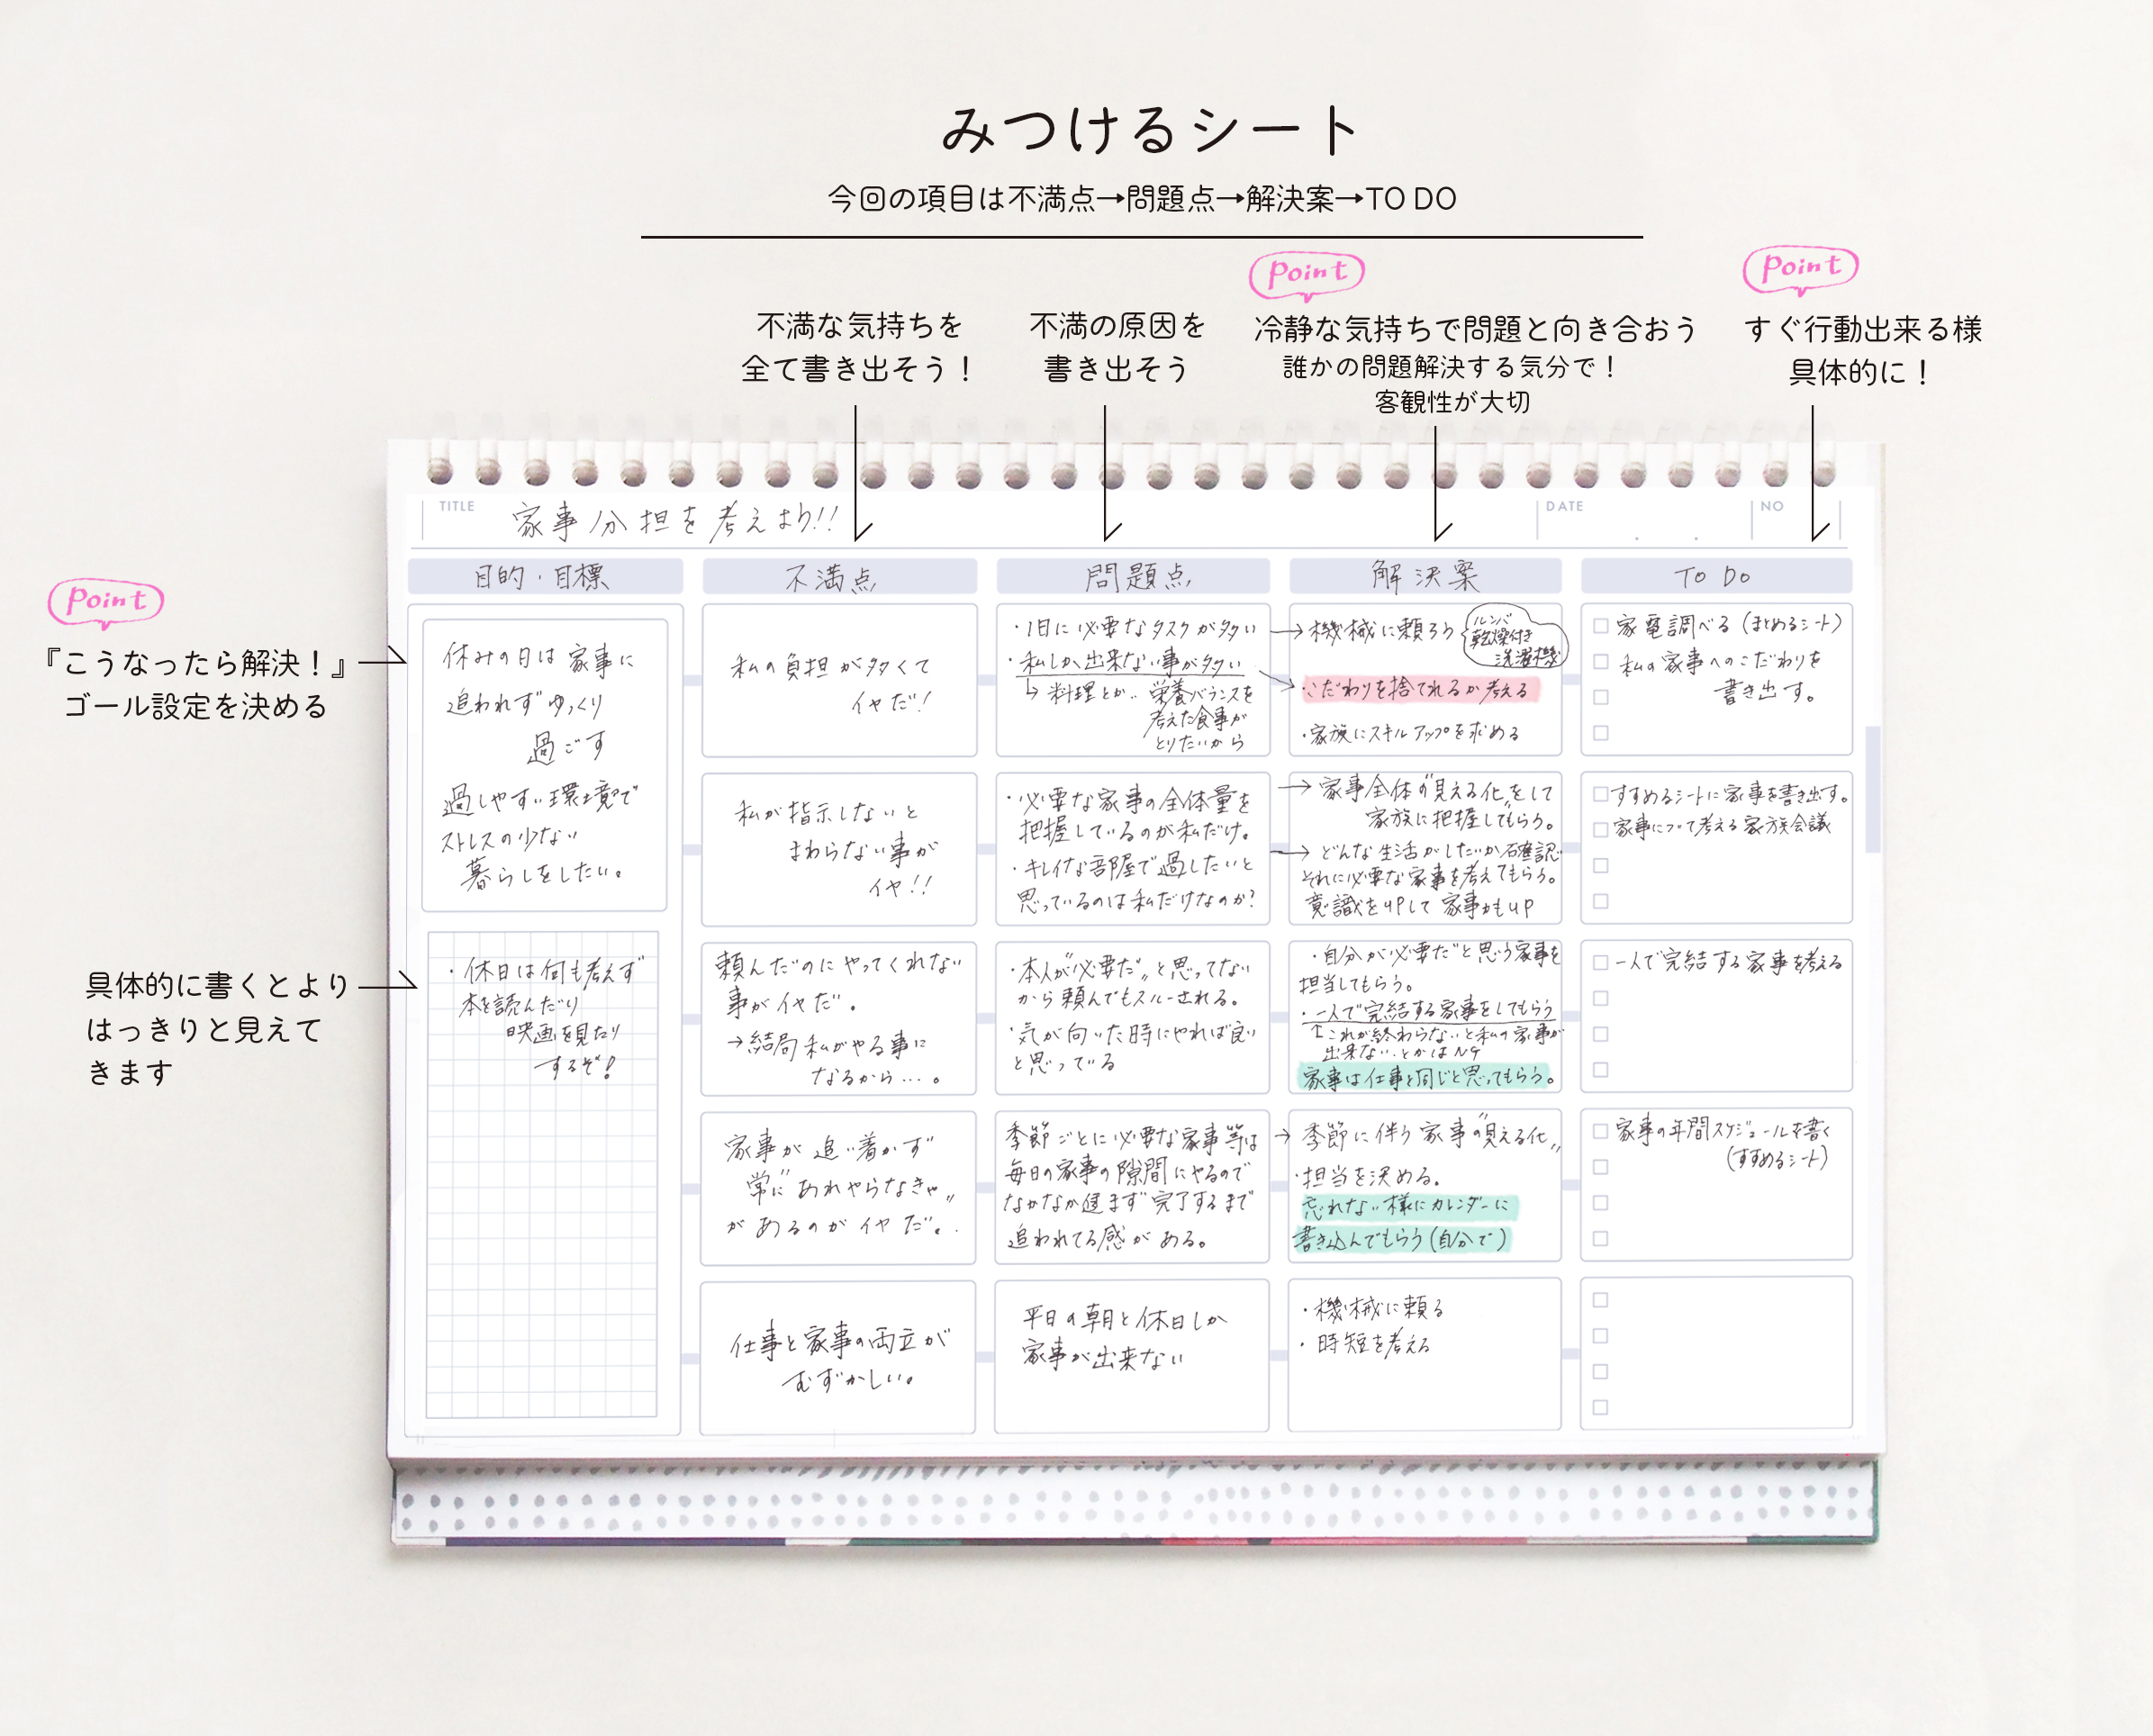 みつけるシート
今回の項目は不満点→問題点→解決案→TO DO
不満な気持ちを
全て書き出そう！
不満の原因を
書き出そう
Point
冷静な気持ちで問題と向き合おう
誰かの問題解決する気分で！
客観性が大切
Point
すぐ行動出来る様
具体的に！
Point
『こうなったら解決！』
ゴール設定を決める
具体的に書くとより
はっきりと見えて
きます
TITLE 家事分担を考えよう!!
DATE . .
NO
目的・目標
休みの日は家事に
追われずゆっくり
過ごす
過しやすい環境で
ストレスの少ない
暮らしをしたい。
・休日は何も考えず
本を読んだり
映画を見たり
するぞ!
不満点
私の負担が多くて
イヤだ!
私が指示しないと
まわらない事が
イヤ!!
頼んだのにやってくれない
事がイヤだ。
→結局私がやる事に
なるから…。
家事が追い着かず
常に"あれやらなきゃ"
があるのがイヤだ。
仕事と家事の両立が
むずかしい。
問題点
・1日に必要なタスクが多い
・私しか出来ない事が多い
↳料理とか.. 栄養バランスを
考えた食事が
とりたいから
・必要な家事の全体量を
把握しているのが私だけ。
・キレイな部屋で過したいと
思っているのは私だけなのか?
・本人が"必要だ"と思ってない
から頼んでもスルーされる。
・気が向いた時にやれば良い
と思っている
季節ごとに必要な家事等は
毎日の家事の隙間にやるので
なかなか進まず完了するまで
追われてる感がある。
平日の朝と休日しか
家事が出来ない
解決案
→機械に頼ろう
ルンバ
乾燥付き
洗濯機
・こだわりを捨てれるか考える
・家族にスキルアップを求める
→家事全体の"見える化"をして
家族に把握してもらう。
→どんな生活がしたいか確認
それに必要な家事を考えてもらう。
意識をUPして家事力もUP
・自分が"必要だ"と思う家事を
担当してもらう。
・一人で完結する家事をしてもらう
↑これが終わらないと私の家事が
出来ない..とかはNG
家事は仕事と同じと思ってもらう。
→季節に伴う家事の"見える化"
・担当を決める。
忘れない様にカレンダーに
書き込んでもらう(自分で)
・機械に頼る
・時短を考える
TO DO
家電調べる(まとめるシート)
私の家事へのこだわりを
書き出す。
すすめるシートに家事を書き出す。
家事について考える家族会議
一人で完結する家事を考える
家事の年間スケジュールを書く
(すすめるシート)